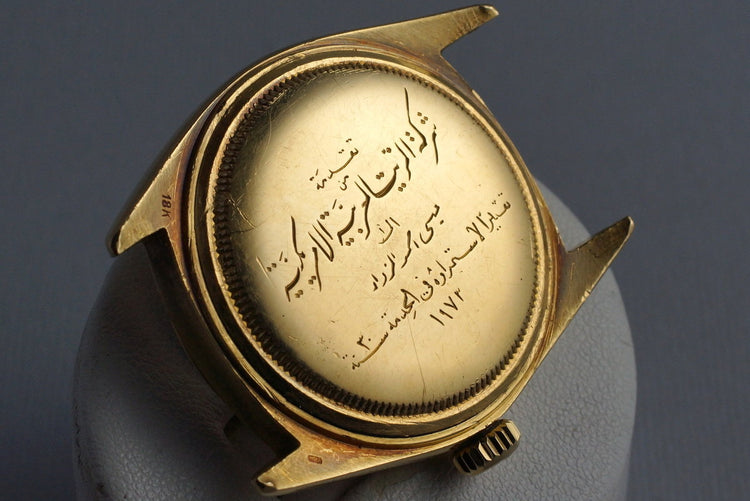 تقدمة
من
شركة الزيت العربية الامريكية
الى
عيسى احمد الزراد
تقديرًا لاستمراره في الخدمة ٣٠ سنة
١٩٧٣
18K